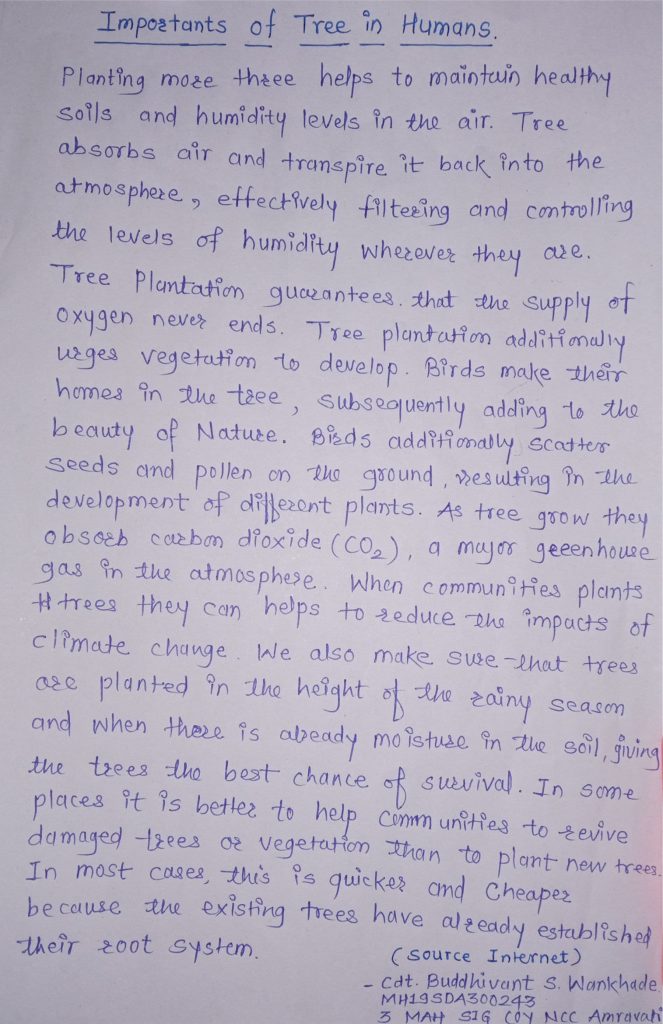 Importants of Tree in Humans.
Planting more three helps to maintain healthy
soils and humidity levels in the air. Tree
absorbs air and transpire it back into the
atmosphere, effectively filtering and controlling
the levels of humidity wherever they are.
Tree Plantation guarantees. that the supply of
oxygen never ends. Tree plantation additionally
urges vegetation to develop. Birds make their
homes in the tree, subsequently adding to the
beauty of Nature. Birds additionally scatter
seeds and pollen on the ground, resulting in the
development of different plants. As tree grow they
obsorb carbon dioxide (CO₂), a major geeenhouse
gas in the atmosphere. When communities plants
trees they can helps to reduce the impacts of
climate change. We also make sure that trees
are planted in the height of the rainy season
and when there is already moisture in the soil, giving
the trees the best chance of survival. In some
places it is better to help communities to revive
damaged trees or vegetation than to plant new trees.
In most cases, this is quicker and Cheaper
because the existing trees have already established
their root system.
(Source Internet)
- Cdt. Buddhivant S. Wankhade.
MH19SDA300243
3 MAH SIG COY NCC Amravati